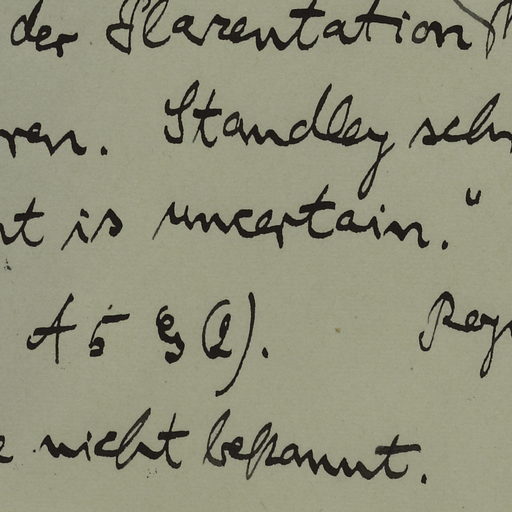 der Plazentation
ren. Standley sch
nt is uncertain."
A 5 G Q).
nicht bekannt.